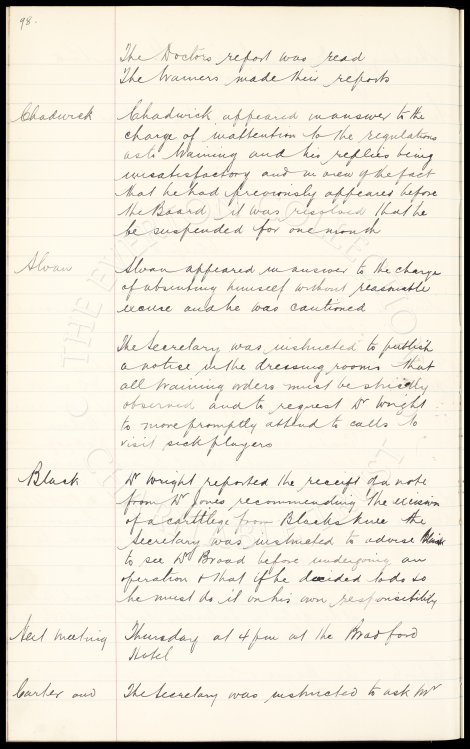 98.
The Doctors report was read
The trainers made their reports
Chadwick
Chadwick appeared in answer to the
charge of inattention to the regulations
as to training and his replies being
unsatisfactory and in view of the fact
that he had previously appeared before
the Board, it was resolved that he
be suspended for one month
Alvan
Alvan appeared in answer to the charge
of absenting himself without reasonable
excuse and he was cautioned
The Secretary was instructed to publish
a notice in the dressing rooms that
all training orders must be strictly
observed and to request Dr Wright
to more promptly attend to calls to
visit sick players
Black
Dr Wright reported the receipt of a note
from Dr Jones recommending the excision
of a cartilege from Blacks knee the
Secretary was instructed to advise Black
to see Dr Broad before undergoing an
operation & that if he decided to do so
he must do it on his own responsibility
Next meeting
Thursday at 4 pm at the Bradford
Hotel
Carter and
The Secretary was instructed to ask Mr